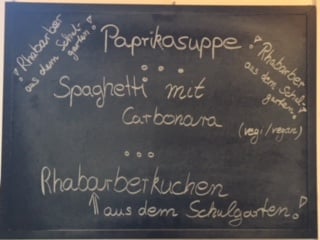 ! Rhabarber
aus dem Schul-
garten!
Paprikasuppe
! Rhabarber
aus dem Schul-
garten!
° ° °
Spaghetti mit
Carbonara
(vegi/vegan)
° ° °
Rhabarberkuchen
⇑ aus dem Schulgarten!